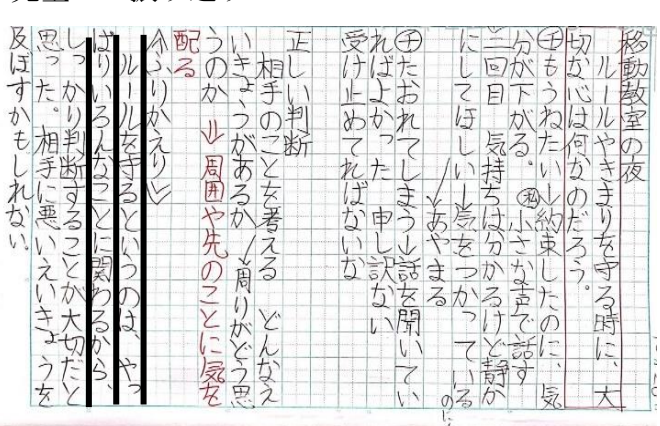 移動教室の夜
ルールやきまりを守る時に、大
切な心は何なのだろう。
㋠もうねたい→約束したのに、気
分が下がる。㋐小さな声で話す
二回目 気持ちは分かるけど静か
にしてほしい→気をつかっている
のに
↓あやまる
㋠たおれてしまう→話を聞いてい
ればよかった 申し訳ない
受け止めてればないな
正しい判断
相手のことを考える どんなえ
いきょうがあるか→周りがどう思
うのか ⇒周囲や先のことに気を
配る
<ふりかえり>
ルールを守るというのは、やっ
ぱりいろんなことに関わるから、
しっかり判断することが大切だと
思った。相手に悪いえいきょうを
及ぼすかもしれない。